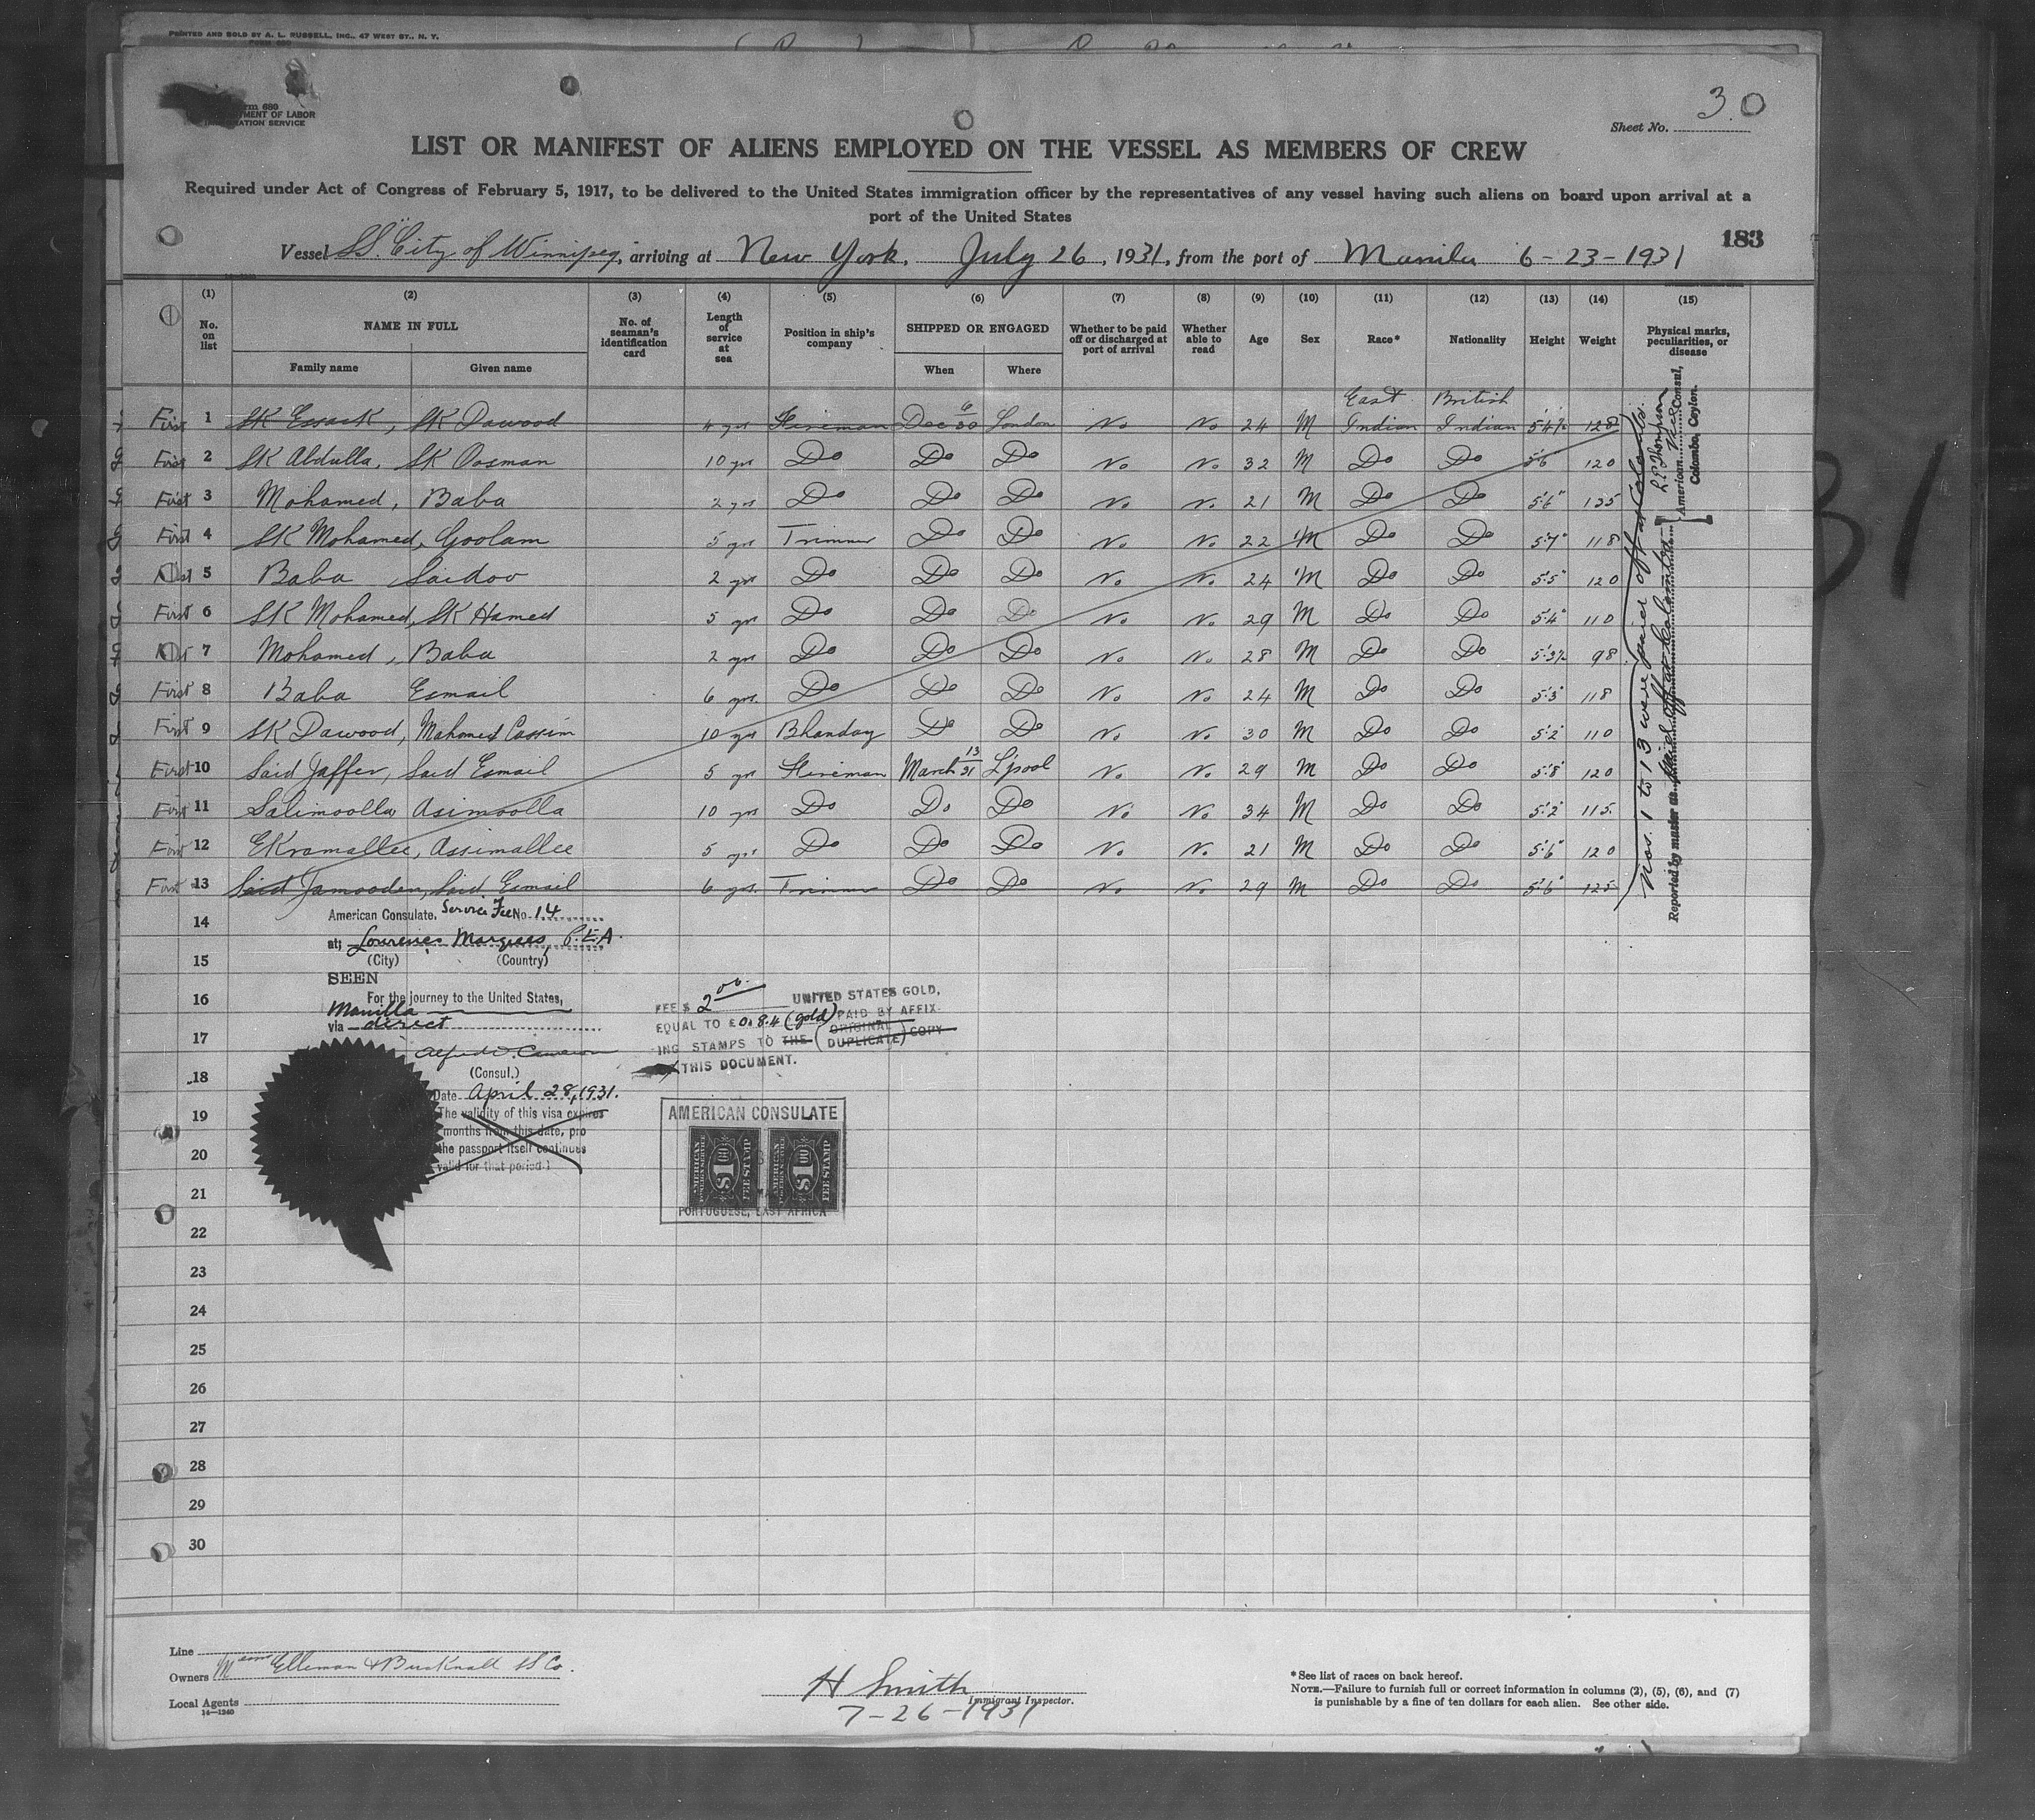 PRINTED AND SOLD BY A. L. RUSSELL, INC., 47 WEST ST., N. Y.
FORM 680
rm 680
TMENT OF LABOR
ATION SERVICE
30
Sheet No.
LIST OR MANIFEST OF ALIENS EMPLOYED ON THE VESSEL AS MEMBERS OF CREW
Required under Act of Congress of February 5, 1917, to be delivered to the United States immigration officer by the representatives of any vessel having such aliens on board upon arrival at a
port of the United States
183
Vessel SS. "City of Winnipeg", arriving at New York. July 26, 1931, from the port of Manila 6-23-1931
(1) (2) (3) (4) (5) (6) (7) (8) (9) (10) (11) (12) (13) (14) (15)
No. on list NAME IN FULL Family name Given name No. of seaman's identification card Length of service at sea Position in ship's company SHIPPED OR ENGAGED When Where Whether to be paid off or discharged at port of arrival Whether able to read Age Sex Race* Nationality Height Weight Physical marks, peculiarities, or disease
First 1 SK Essack, SK Dawood 4 yrs Fireman Dec 6/30 London No No 24 M East Indian British Indian 5'4½ 128
First 2 SK Abdulla, SK Oosman 10 yrs Do Do Do No No 32 M Do Do 5'6 120
First 3 Mohamed, Baba 2 yrs Do Do Do No No 21 M Do Do 5'6" 135
First 4 SK Mohamed, Goolam 5 yrs Trimmer Do Do No No 22 M Do Do 5'7" 118
5 Baba Saidoo 2 yrs Do Do Do No No 24 M Do Do 5'5" 120
First 6 SK Mohamed, SK Hamed 5 yrs Do Do Do No No 29 M Do Do 5'4" 110
7 Mohamed, Baba 2 yrs Do Do Do No No 28 M Do Do 5'3½ 98
First 8 Baba Esmail 6 yrs. Do Do Do No No 24 M Do Do 5'3" 118
First 9 SK Dawood, Mahomed Cassim 10 yrs Bhandary Do Do No No 30 M Do Do 5'2" 110
First 10 Said Jaffer, Said Esmail 5 yrs Fireman March 13/31 L'pool No No 29 M Do Do 5'8" 120
First 11 Salimoolla Asimoolla 10 yrs Do Do Do No No 34 M Do Do 5'2" 115.
First 12 Ekramallee, Assimallee 5 yrs Do Do Do No No 21 M Do Do 5'6" 120
First 13 Said Jamooden, Said Esmail 6 yrs. Trimmer Do Do No No 29 M Do Do 5'6" 125
Nos. 1 to 13 were paid off at Colombo.
Reported by master as paid off at Colombo
R. C. Thompson
American Vice Consul,
Colombo, Ceylon.
14
American Consulate, Service Fee No. 14
at; Lourenco Marques, P.E.A.
15
(City) (Country)
SEEN
16
For the journey to the United States,
Manilla
via direct
17
Alfred D. Cameron
(Consul.)
18
Date April 28, 1931.
19
The validity of this visa expires
months from this date, pro
the passport itself continues
20
valid for that period.)
FEE $ 2.00 UNITED STATES GOLD,
EQUAL TO £0.8.4 (gold) PAID BY AFFIX-
ING STAMPS TO THE (ORIGINAL DUPLICATE) COPY
THIS DOCUMENT.
AMERICAN CONSULATE
AMERICAN FOREIGN SERVICE $1.00 FEE STAMP
AMERICAN FOREIGN SERVICE $1.00 FEE STAMP
PORTUGUESE, EAST AFRICA
21
22
23
24
25
26
27
28
29
30
31
Line
Owners Messrs Ellerman & Bucknall SS Co.
Local Agents
14—1240
H Smith
Immigrant Inspector.
7-26-1931
*See list of races on back hereof.
NOTE.—Failure to furnish full or correct information in columns (2), (5), (6), and (7)
is punishable by a fine of ten dollars for each alien. See other side.